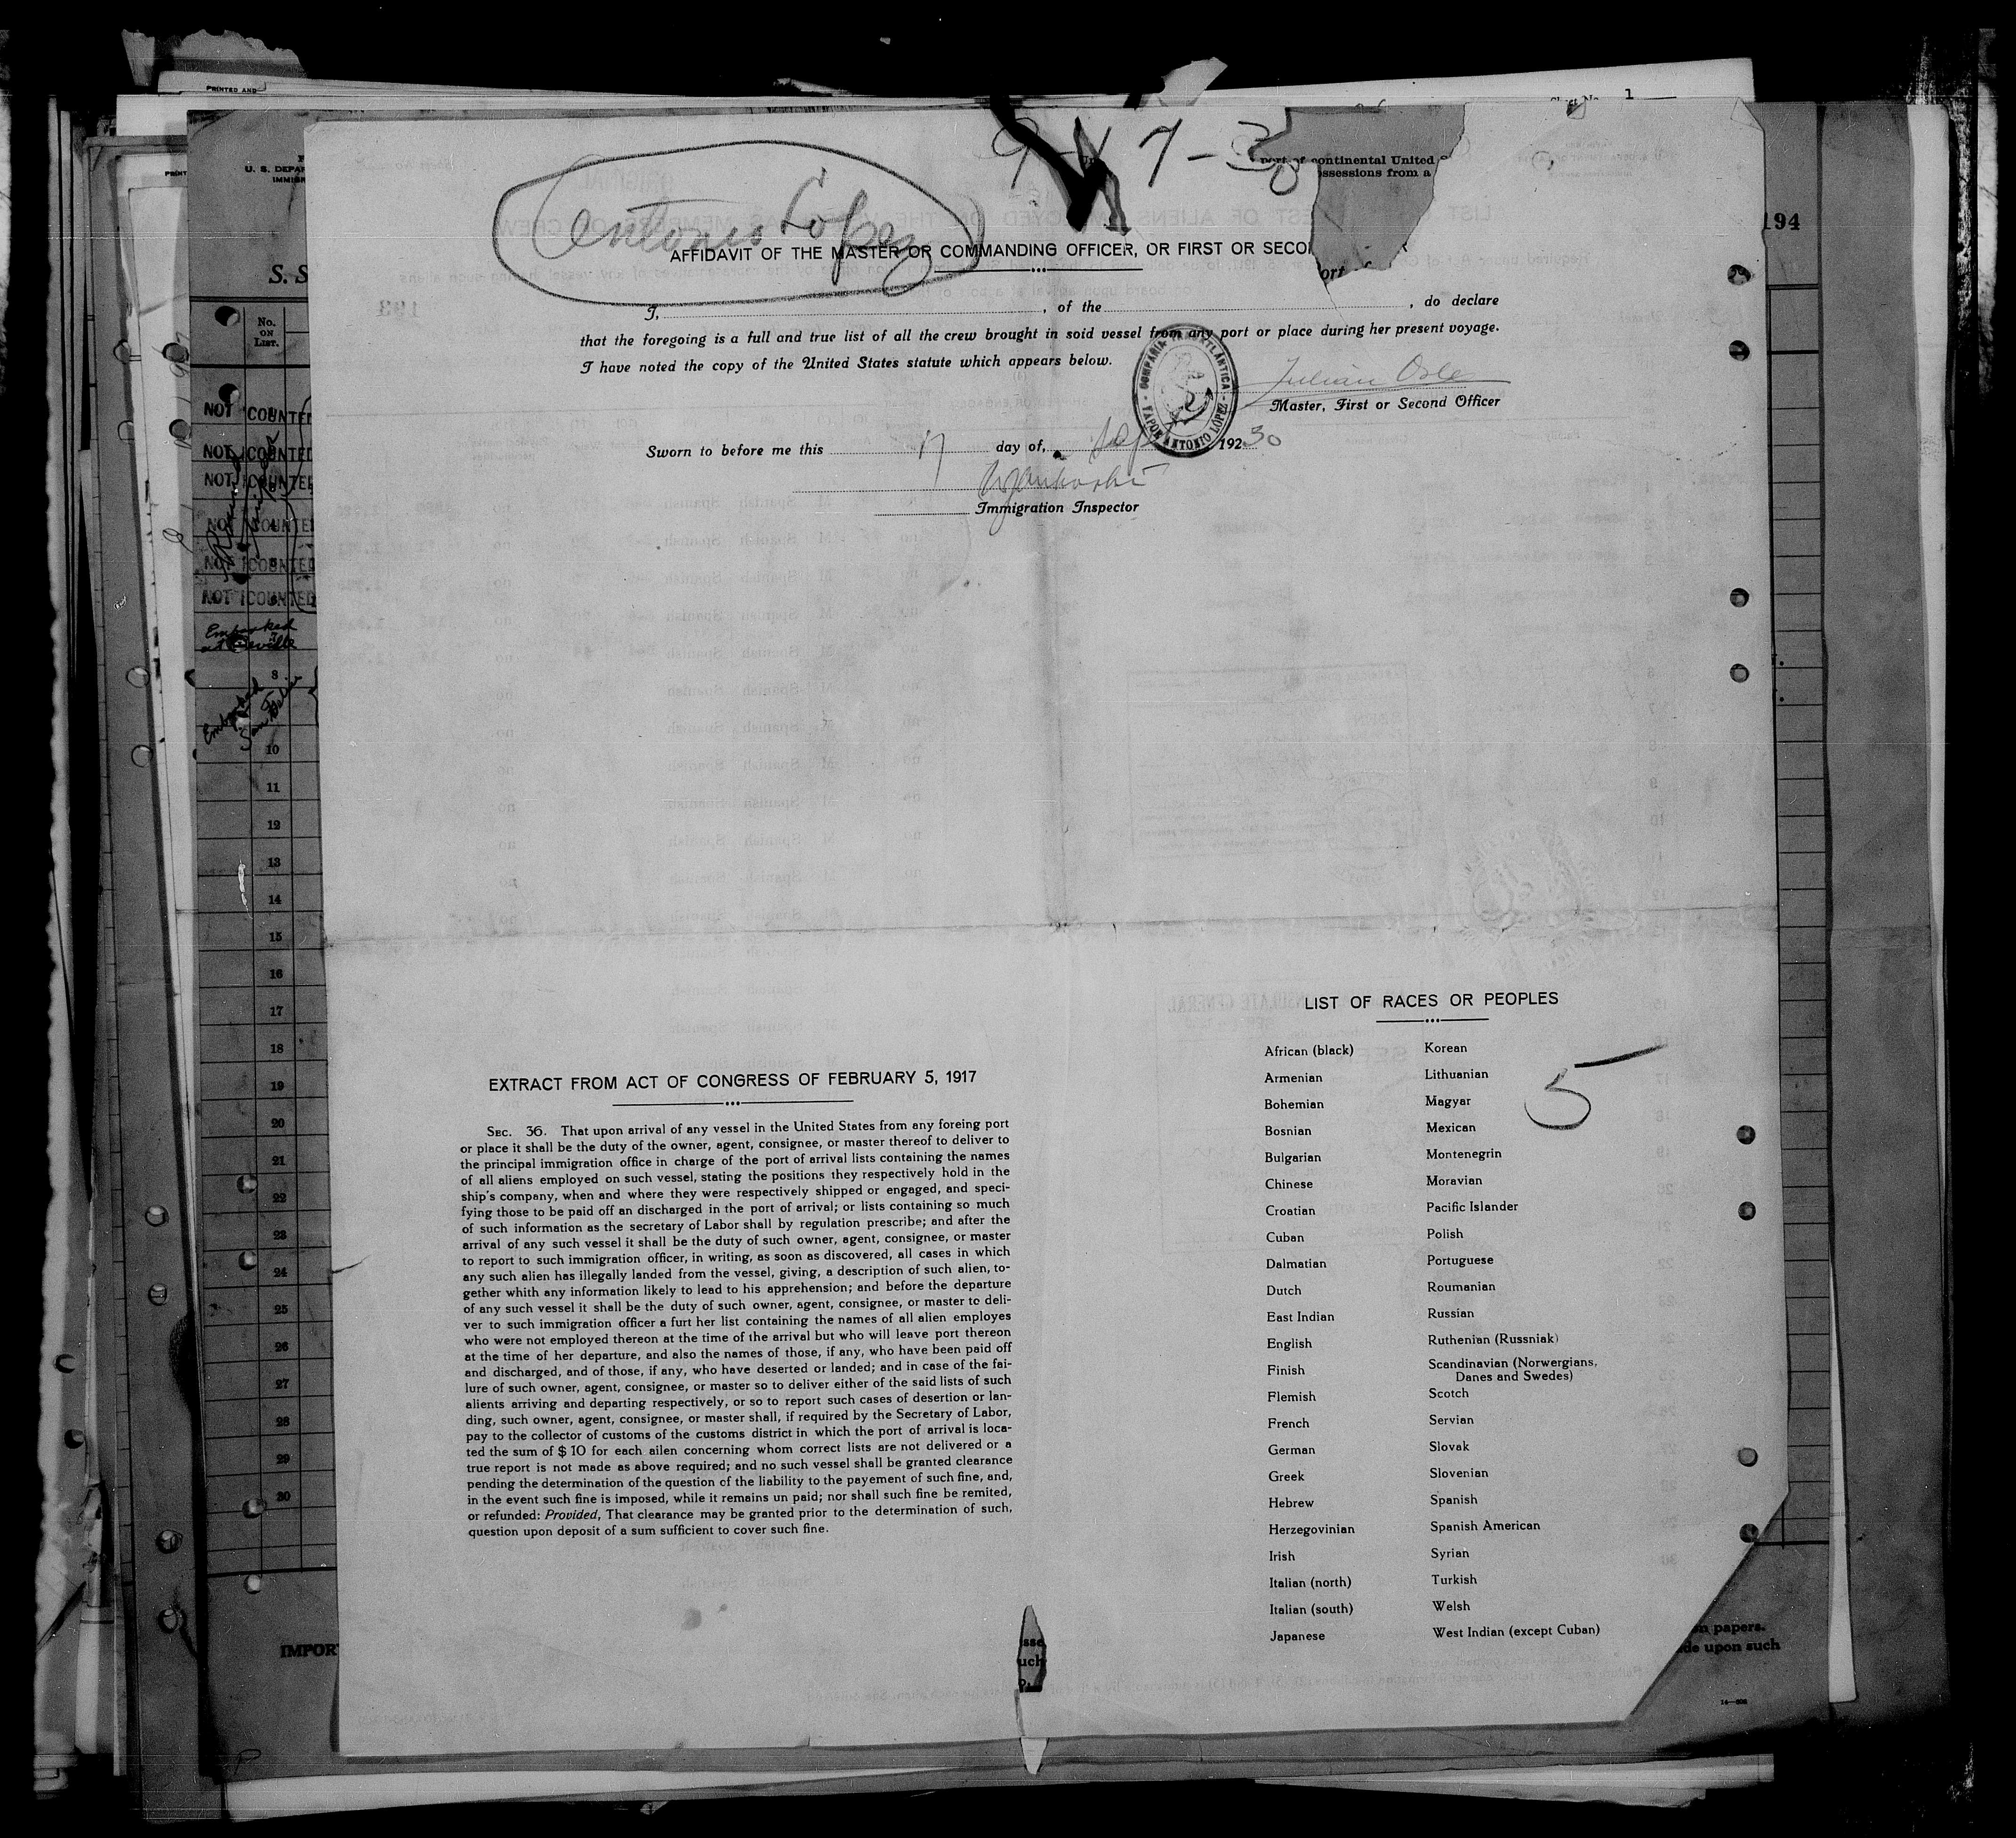 PRINTED AND
1
9 - 17 - 30
Antonio López
port of continental United
ossessions from a
194
AFFIDAVIT OF THE MASTER OR COMMANDING OFFICER, OR FIRST OR SECON
I, , of the , do declare
that the foregoing is a full and true list of all the crew brought in soid vessel from any port or place during her present voyage.
I have noted the copy of the United States statute which appears below.
COMPAÑIA TRASATLÁNTICA
VAPOR ANTONIO LÓPEZ
Julian Osle
Master, First or Second Officer
Sworn to before me this 17 day of, Sep 192 30
Immigration Inspector
U. S. DEPAR
IMMIGR
S. S
No.
ON
LIST.
NOT COUNTED
NOT COUNTED
NOT COUNTED
NOT COUNTED
NOT COUNTED
NOT COUNTED
Embarked
at Seville
8
10
11
12
13
14
15
16
17
18
19
20
21
22
23
24
25
26
27
28
29
30
IMPOR
EXTRACT FROM ACT OF CONGRESS OF FEBRUARY 5, 1917
SEC. 36. That upon arrival of any vessel in the United States from any foreing port
or place it shall be the duty of the owner, agent, consignee, or master thereof to deliver to
the principal immigration office in charge of the port of arrival lists containing the names
of all aliens employed on such vessel, stating the positions they respectively hold in the
ship's company, when and where they were respectively shipped or engaged, and speci-
fying those to be paid off an discharged in the port of arrival; or lists containing so much
of such information as the secretary of Labor shall by regulation prescribe; and after the
arrival of any such vessel it shall be the duty of such owner, agent, consignee, or master
to report to such immigration officer, in writing, as soon as discovered, all cases in which
any such alien has illegally landed from the vessel, giving, a description of such alien, to-
gether whith any information likely to lead to his apprehension; and before the departure
of any such vessel it shall be the duty of such owner, agent, consignee, or master to deli-
ver to such immigration officer a furt her list containing the names of all alien employes
who were not employed thereon at the time of the arrival but who will leave port thereon
at the time of her departure, and also the names of those, if any, who have been paid off
and discharged, and of those, if any, who have deserted or landed; and in case of the fai-
lure of such owner, agent, consignee, or master so to deliver either of the said lists of such
alients arriving and departing respectively, or so to report such cases of desertion or lan-
ding, such owner, agent, consignee, or master shall, if required by the Secretary of Labor,
pay to the collector of customs of the customs district in which the port of arrival is loca-
ted the sum of $ 10 for each ailen concerning whom correct lists are not delivered or a
true report is not made as above required; and no such vessel shall be granted clearance
pending the determination of the question of the liability to the payement of such fine, and,
in the event such fine is imposed, while it remains un paid; nor shall such fine be remited,
or refunded: Provided, That clearance may be granted prior to the determination of such,
question upon deposit of a sum sufficient to cover such fine.
LIST OF RACES OR PEOPLES
5
African (black) Korean
Armenian Lithuanian
Bohemian Magyar
Bosnian Mexican
Bulgarian Montenegrin
Chinese Moravian
Croatian Pacific Islander
Cuban Polish
Dalmatian Portuguese
Dutch Roumanian
East Indian Russian
English Ruthenian (Russniak)
Finish Scandinavian (Norwergians,
Danes and Swedes)
Flemish Scotch
French Servian
German Slovak
Greek Slovenian
Hebrew Spanish
Herzegovinian Spanish American
Irish Syrian
Italian (north) Turkish
Italian (south) Welsh
Japanese West Indian (except Cuban)
n papers.
de upon such